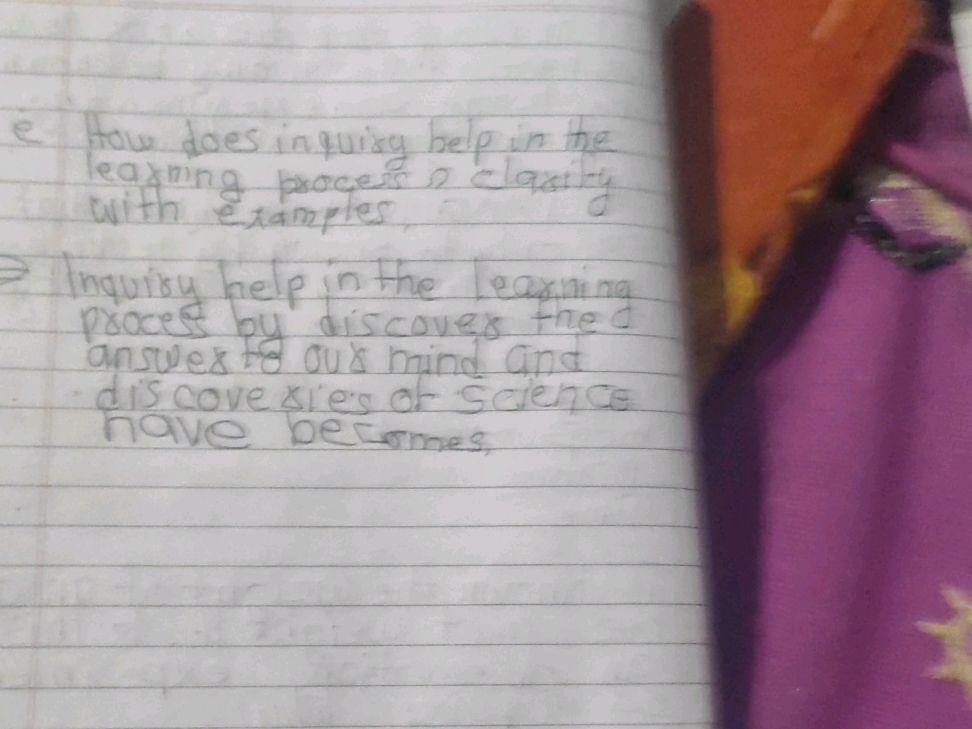 e How does inquiry help in the
learning process ? clarity
with examples.
⇒ Inquiry help in the learning
process by discover the d
answer to our mind and
discoveries of science
have becomes,